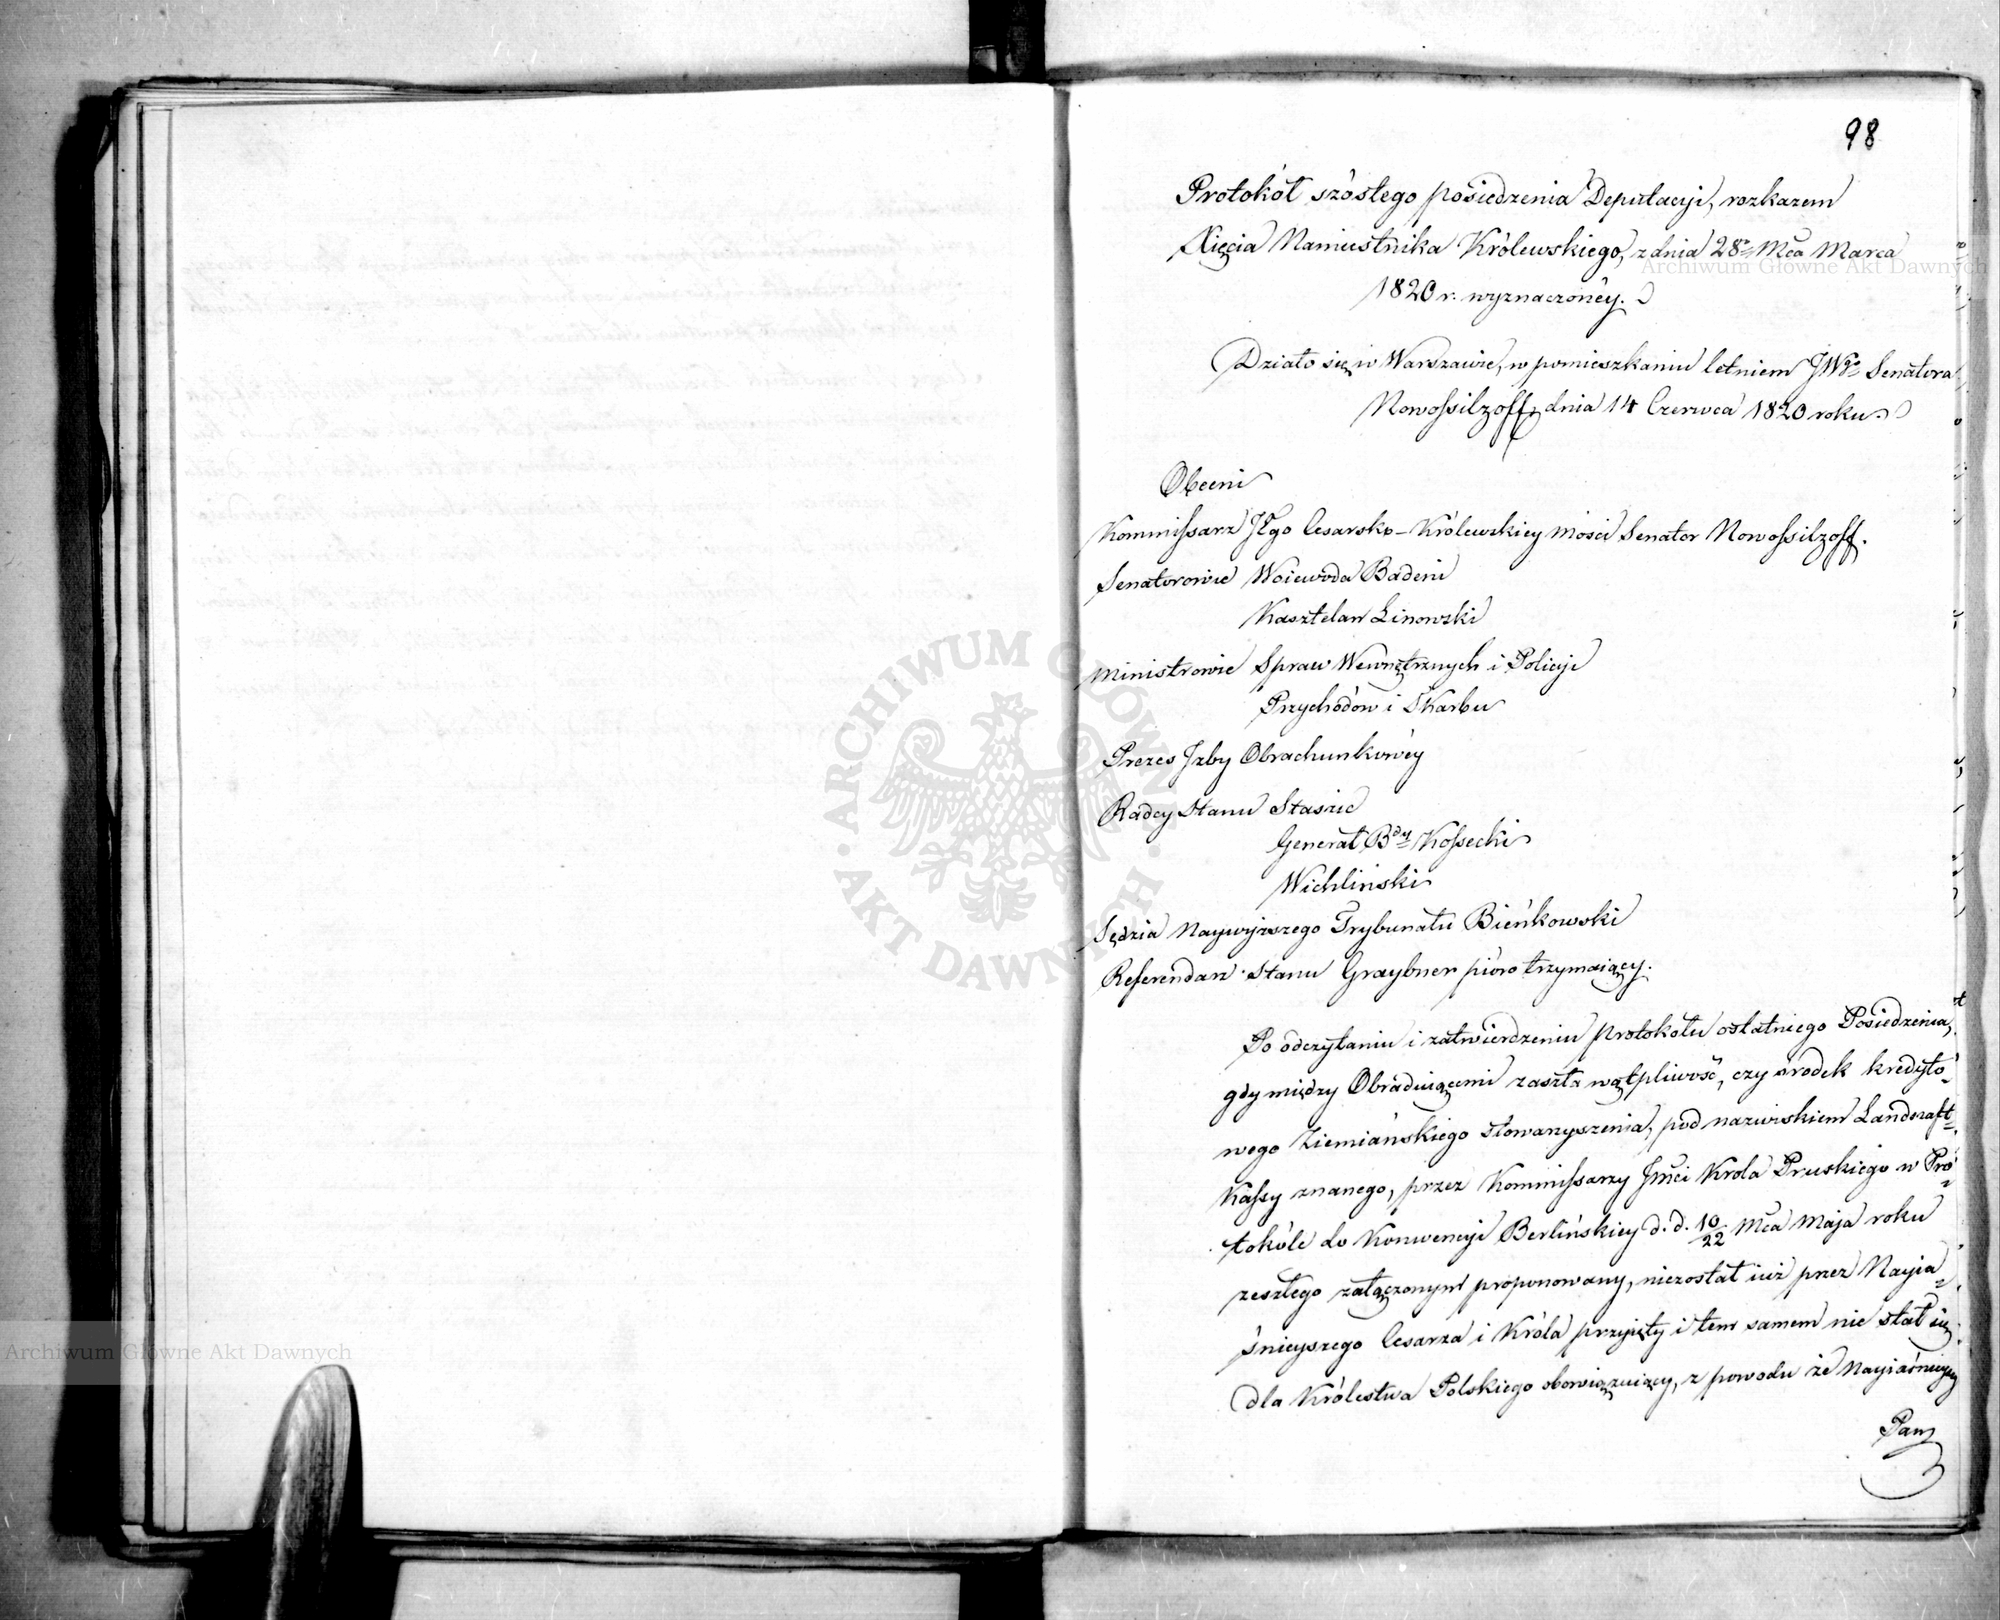 98
Protokół szóstego posiedzenia Deputacyi, rozkazem
Xięcia Namiestnika Królewskiego, z dnia 28º Mca Marca
1820 r. wyznaczonéy.
Działo się w Warszawie, w pomieszkaniu letniem JWgo Senatora
Nowossilzoff, dnia 14 Czerwca 1820 roku.
Obecni
Kommissarz JEgo Cesarsko-Królewskiey Mości Senator Nowossilzoff.
Senatorowie Woiewoda Badeni
Kasztelan Linowski
Ministrowie Spraw Wewnętrznych i Policyi
Przychodów i Skarbu
Prezes Izby Obrachunkowéy
Radcy Stanu Staszic
Generał Bdy Kossecki
Wichliński
Sędzia Naywyższego Trybunału Bieńkowski
Referendarz Stanu Graybner pióro trzymaiący.
Po odczytaniu i zatwierdzeniu Protokółu ostatniego Posiedzenia,
gdy między Obraduiącemi zaszła wątpliwość, czy srodek kredyto-
wego Ziemiańskiego Stowarzyszenia, pod nazwiskiem Landszaft-
Kassy znanego, przez Kommissarzy Jmći Krola Pruskiego w Pro-
tokóle do Konwencyi Berlińskiey d. d. 10/22 Mca Maja roku
zeszłego załączonym proponowany, niezostał iuż przez Nayia-
śnieyszego Cesarza i Króla przyięty i tem samem nie stał się
dla Królestwa Polskiego obowiązuiący, z powodu że Nayiaśnieyszy
Pan
Archiwum Główne Akt Dawnych
Archiwum Główne Akt Dawnych
ARCHIWUM GŁÓWNE · AKT DAWNYCH ·